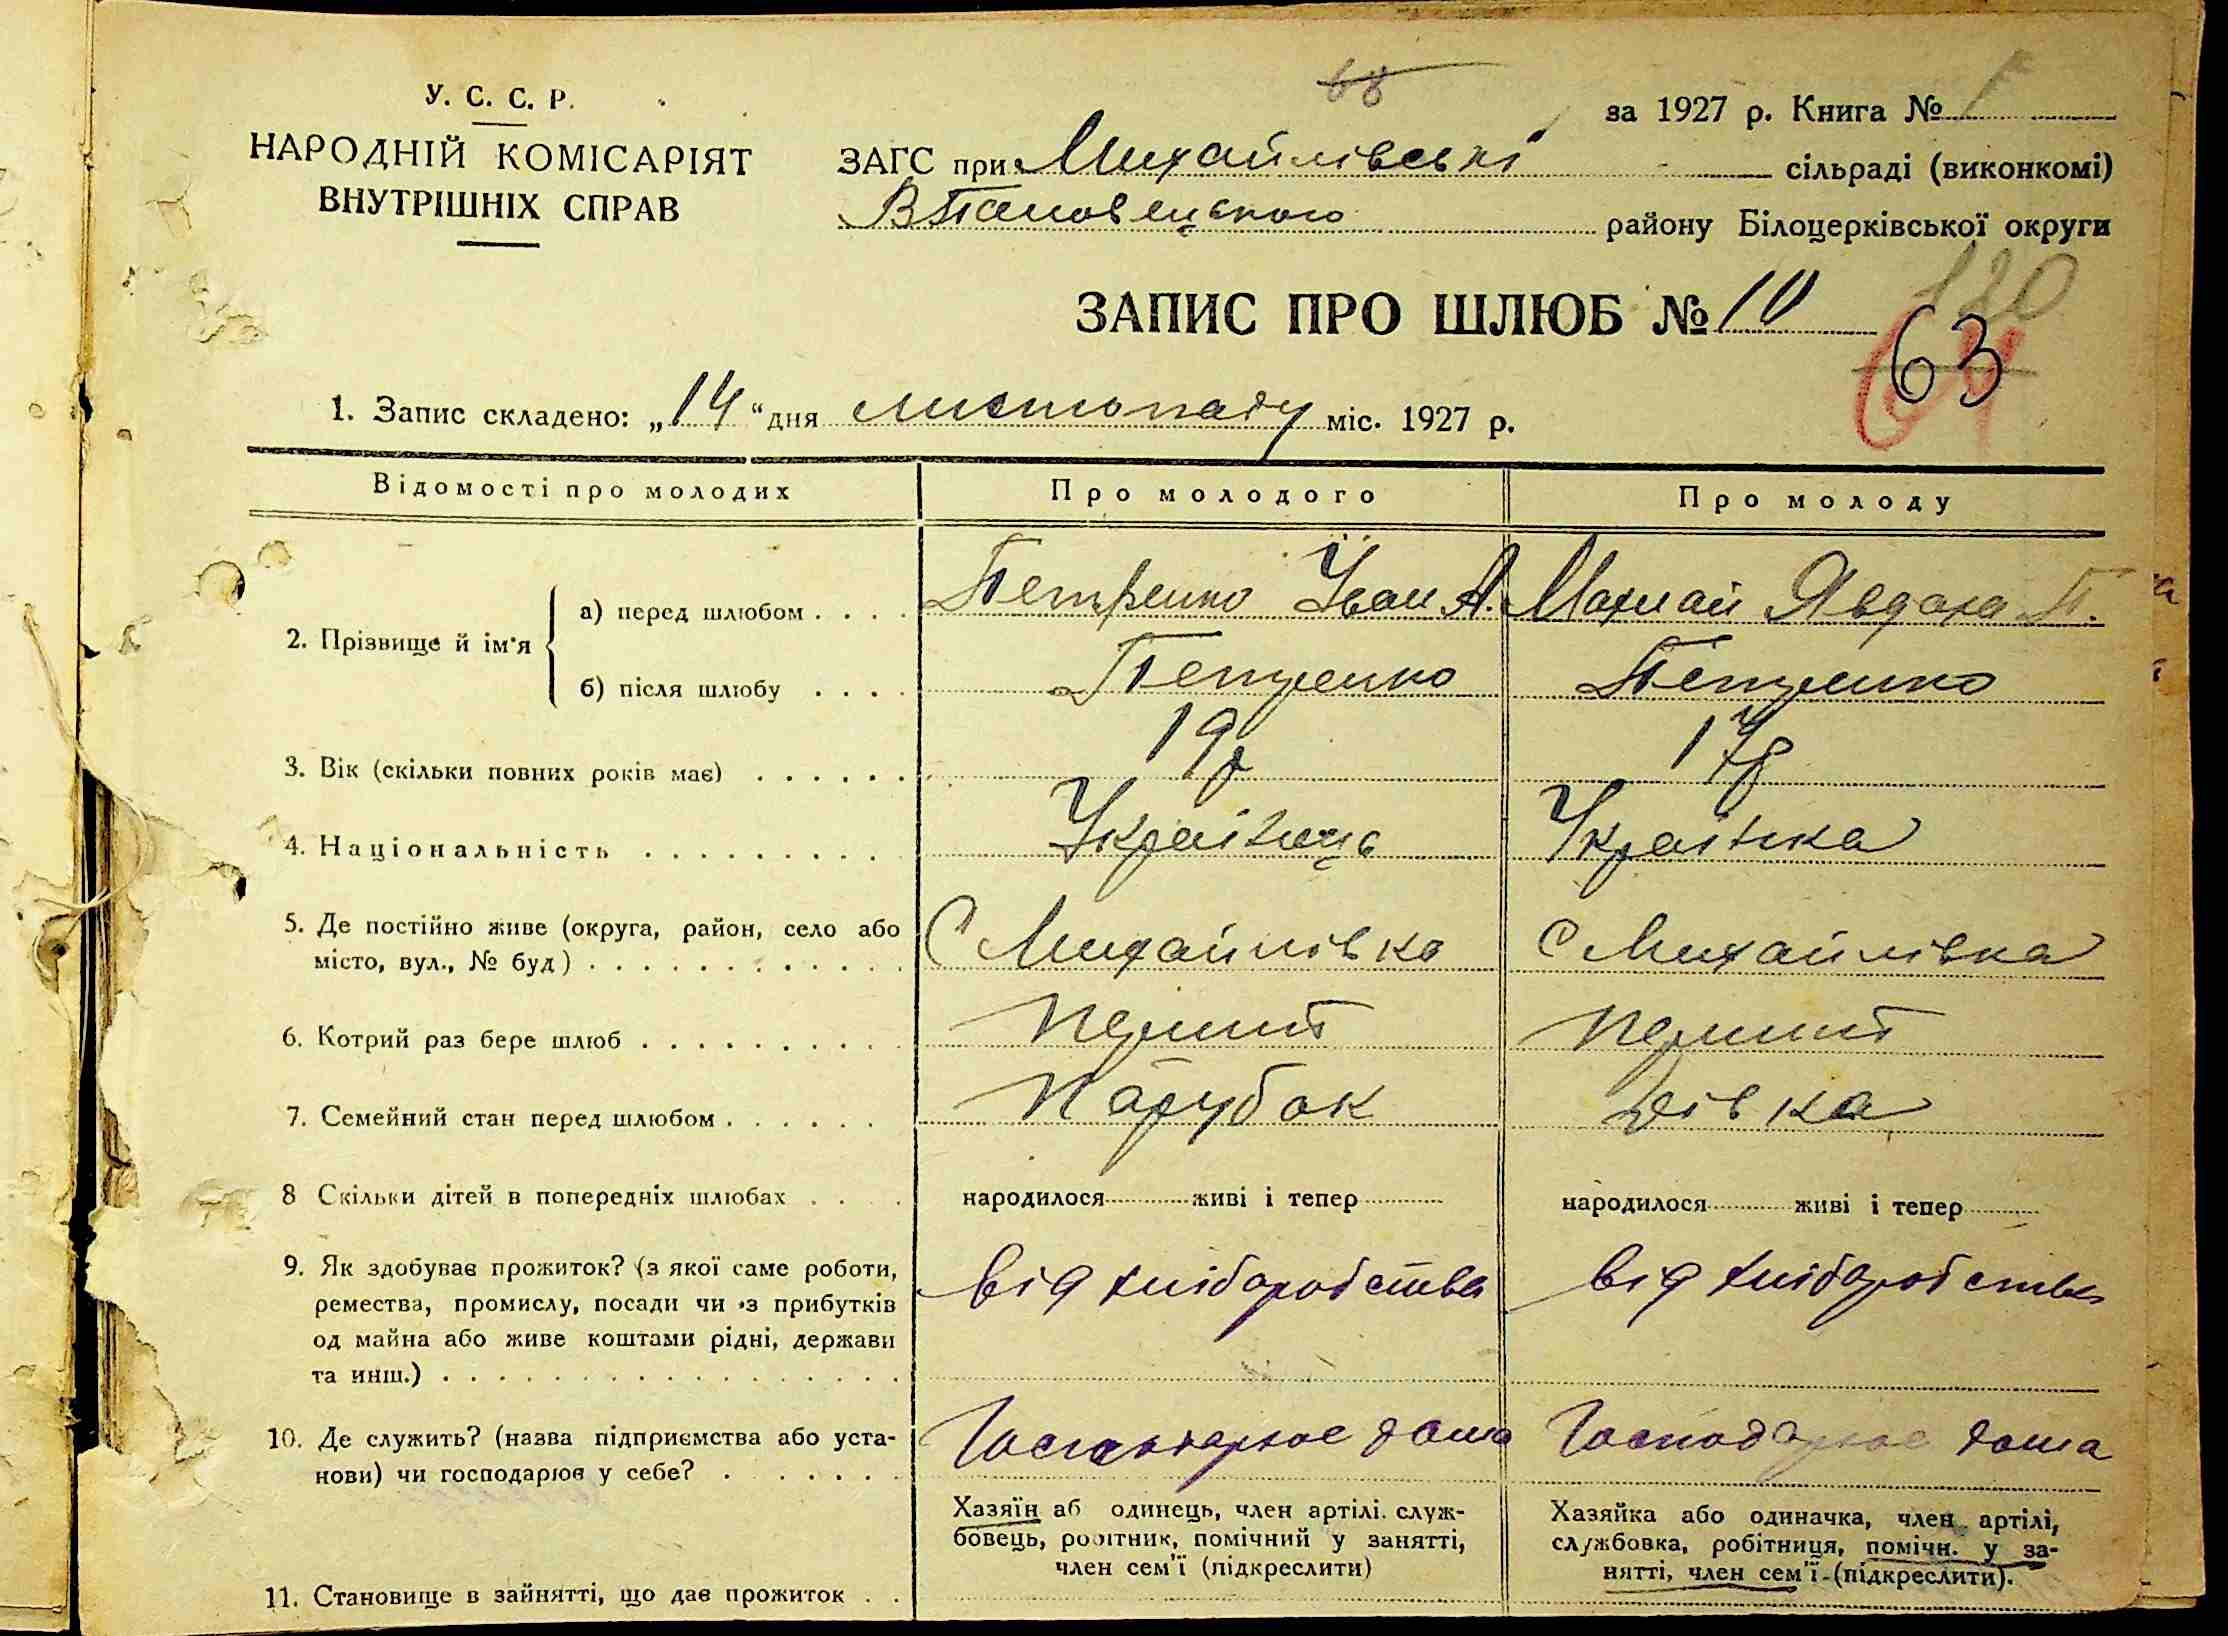 68
У. С. С. Р.
НАРОДНІЙ КОМІСАРІЯТ
ВНУТРІШНІХ СПРАВ
за 1927 р. Книга № 1
ЗАГС при Михайлівські сільраді (виконкомі)
району Білоцерківської округи
ЗАПИС ПРО ШЛЮБ № 10
120
63
64
1. Запис складено: „14“ дня листопаду міс. 1927 р.
Відомості про молодих Про молодого Про молоду
2. Прізвище й ім'я
а) перед шлюбом . . . . Петренко Іван А. Махнай Явдоха П.
б) після шлюбу . . . . Петренко Петренко
3. Вік (скільки повних років має) . . . . . . 19 р 17 р
4. Національність . . . . . . . . . Українець Українка
5. Де постійно живе (округа, район, село або
місто, вул., № буд) . . . . . . . . . . . . С Михайлівка С Михайлівка
6. Котрий раз бере шлюб . . . . . . . . . . Перший Перший
7. Семейний стан перед шлюбом . . . . . . Парубок Дівка
8 Скільки дітей в попередніх шлюбах . . . . народилося живі і тепер народилося живі і тепер
9. Як здобуває прожиток? (з якої саме роботи,
ремества, промислу, посади чи з прибутків
од майна або живе коштами рідні, держави
та инш.) . . . . . . . . . . . . . . . . .
від хліборобства від хліборобства
10. Де служить? (назва підприємства або уста-
нови) чи господарює у себе? . . . . . . .
Господарює дома Господарює дома
11. Становище в зайнятті, що дає прожиток . .
Хазяїн аб одинець, член артілі, служ-
бовець, робітник, помічний у занятті,
член сем'ї (підкреслити)
Хазяйка або одиначка, член артілі,
службовка, робітниця, помічн. у за-
нятті, член сем'ї (підкреслити).